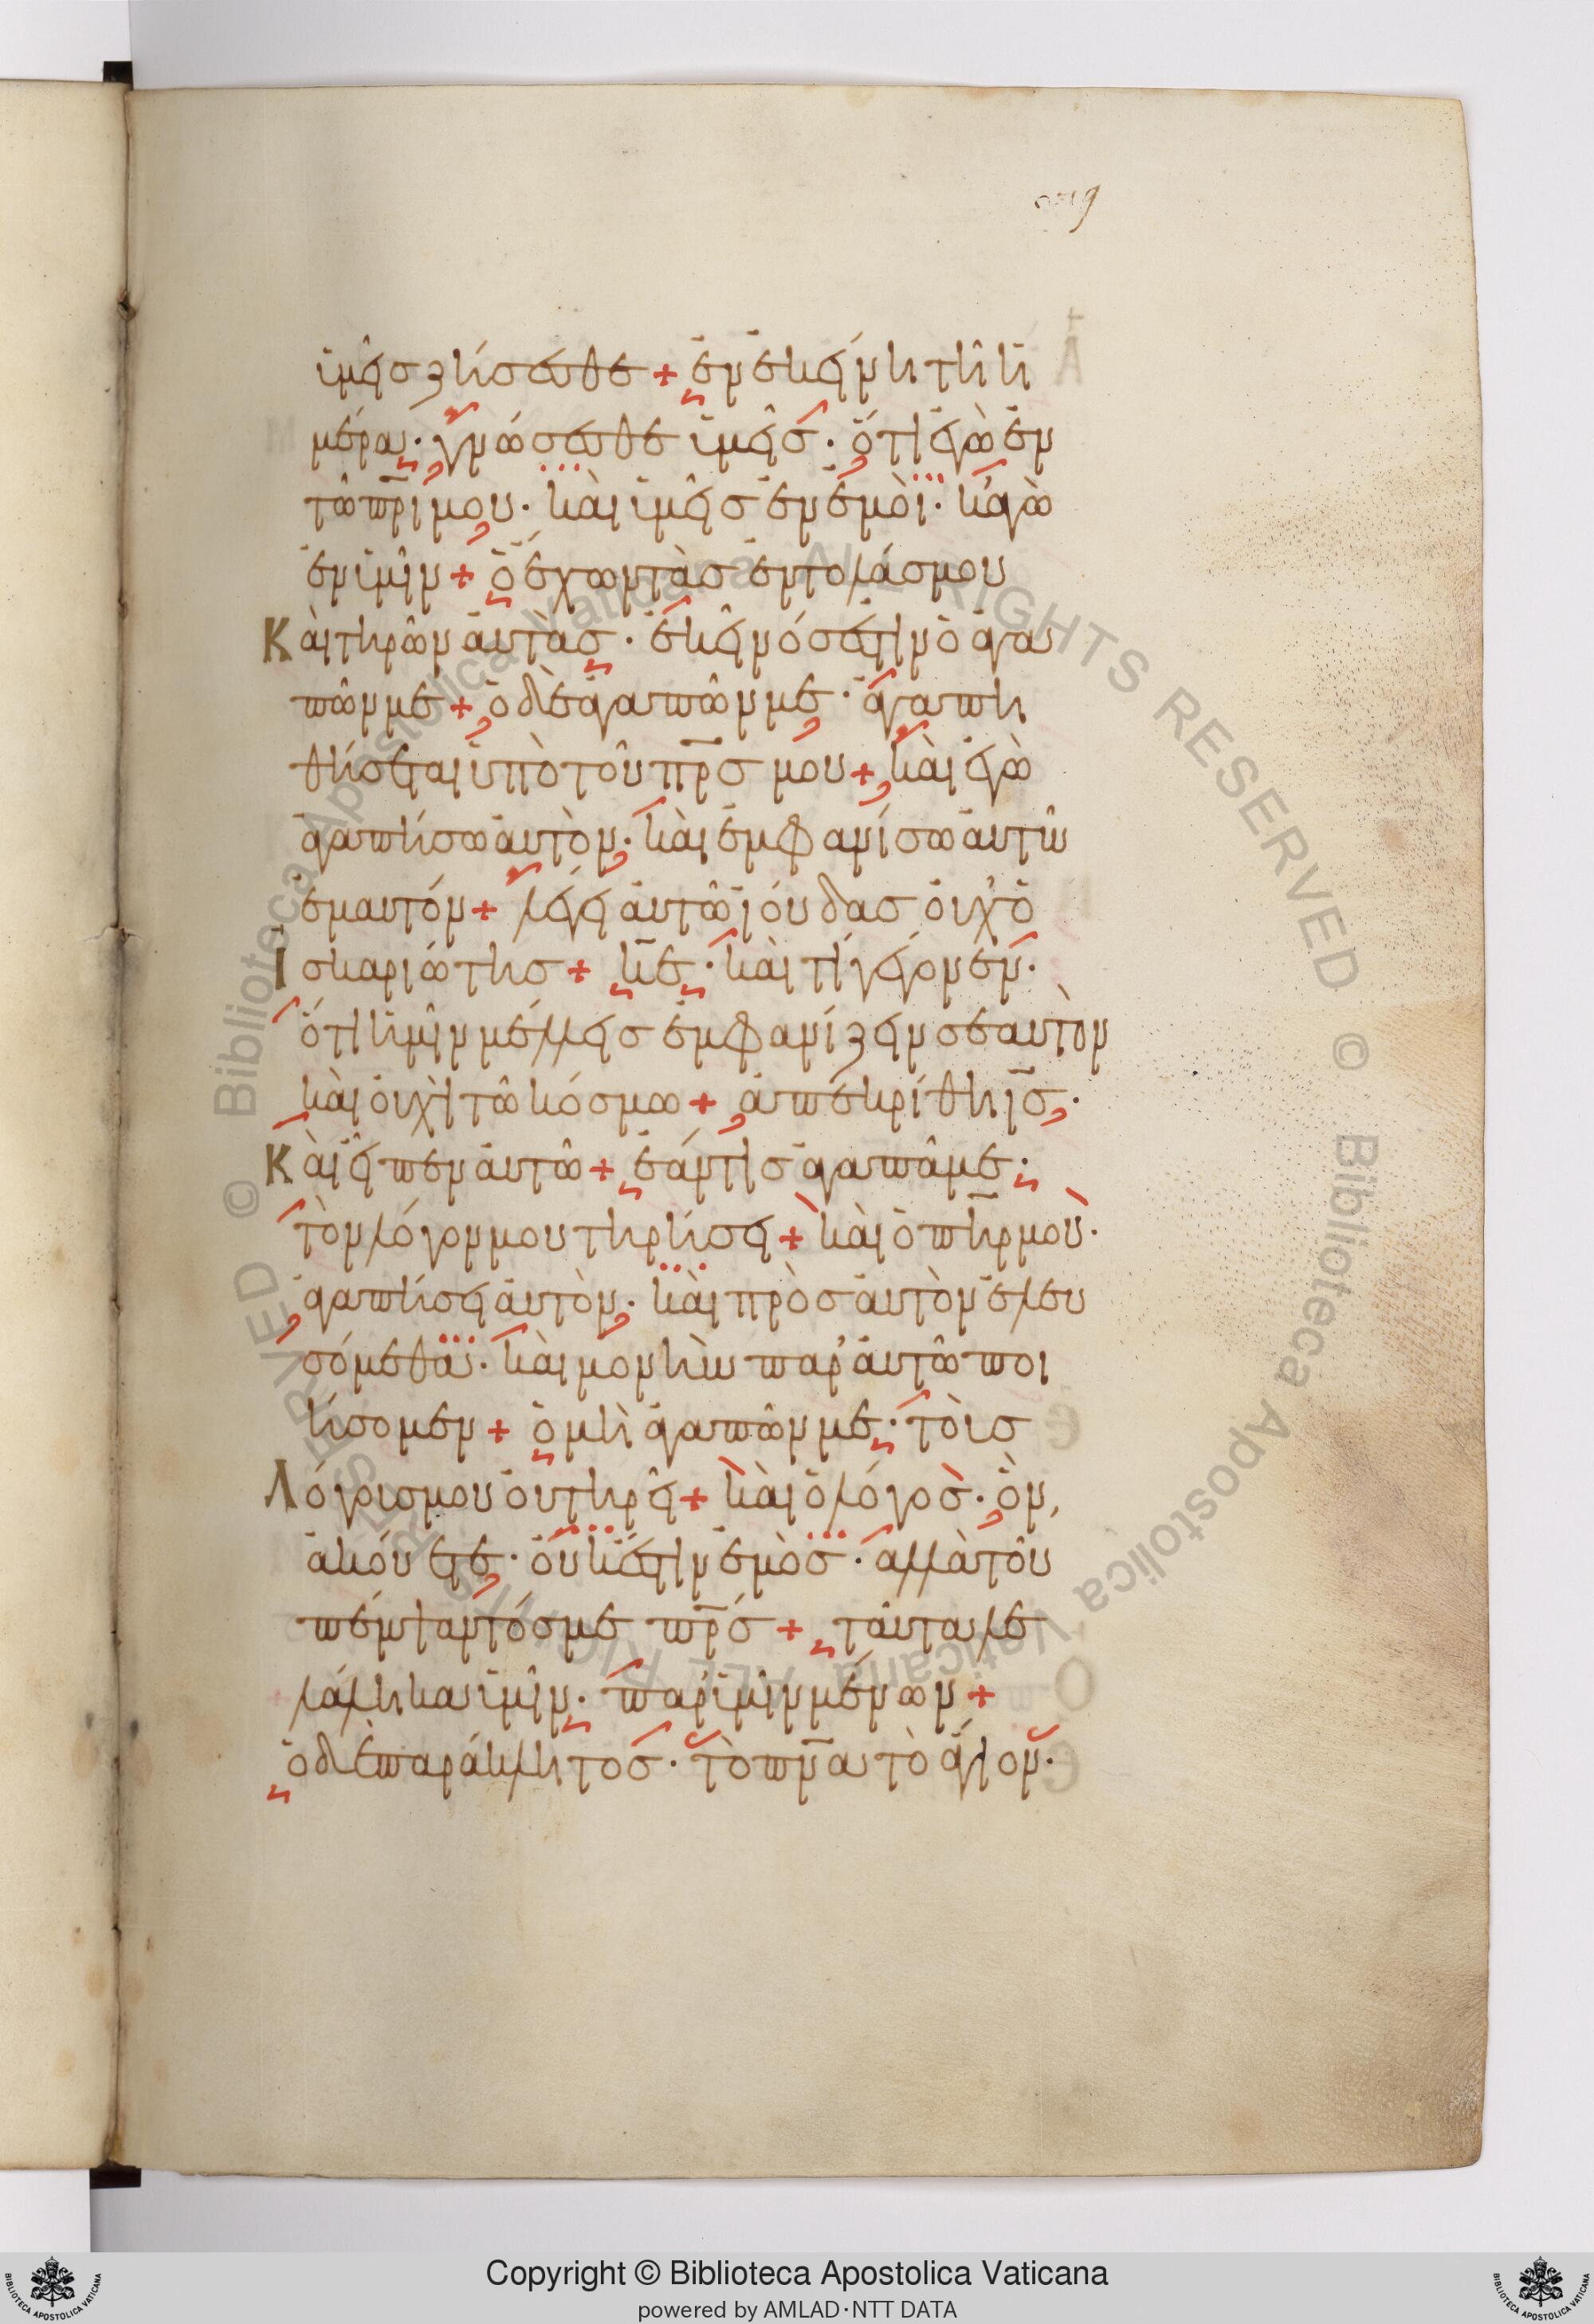 ὑμεῖς ζήσεσθε + ἐν ἐκείνη τῆ ἡ
μέρα· γνώσεσθε ὑμεῖς· ὅτι ἐγὼ ἐν
τῶ πρι μου· καὶ ὑμεῖς ἐν ἐμοὶ· κἀγὼ
ἐν ὑμῖν + ὁ ἔχων τὰς ἐντολάς μου
Καὶ τηρῶν αὐτὰς· ἐκεῖνός ἐστιν ὁ ἀγα
πῶν με + ὁ δὲ ἀγαπῶν με· ἀγαπη
θήσεται ὑπὸ τοῦ πρς μου + καὶ ἐγὼ
ἀγαπήσω αὐτὸν· καὶ ἐμφανίσω αὐτῶ
ἐμαυτόν + λέγει αὐτῶ ἰούδας οὐχ ὁ
Ισκαριώτης + κε· καὶ τί γέγονεν·
ὅτι ἡμῖν μέλλεις ἐμφανίζειν σεαυτὸν
καὶ οὐχὶ τῶ κόσμω + ἀπεκρίθη ις·
Καὶ εἶπεν αὐτῶ + ἐάν τις ἀγαπᾶ με·
τὸν λόγον μου τηρήσει + καὶ ὁ πηρ μου·
ἀγαπήσει αὐτὸν· καὶ πρὸς αὐτὸν ἐλευ
σόμεθα· καὶ μονὴν παρ' αὐτῶ ποι
ήσομεν + ὁ μὴ ἀγαπῶν με· τοὺς
Λόγους μου οὐ τηρεῖ + καὶ ὁ λόγος· ὃν
ἀκούετε· οὐκ ἔστιν ἐμὸς· ἀλλὰ τοῦ
πέμψαντός με πρς + ταῦτα λε
λάληκα ὑμῖν· παρ' ὑμῖν μένων +
ὁ δὲ παράκλητος· τὸ πνα τὸ ἅγιον·
Copyright © Biblioteca Apostolica Vaticana
powered by AMLAD·NTT DATA